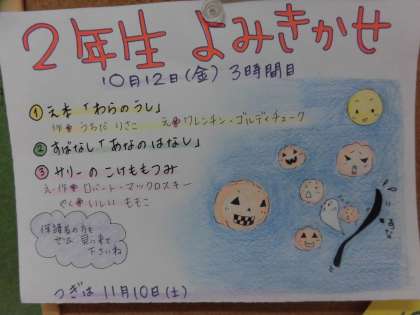 2年生 よみきかせ
10月12日(金) 3時間目
① え本「わらのうし」
作 うちだ りさこ え ワレンチン・ゴルディチューク
② すばなし「あなのはなし」
③ サリーのこけももつみ
え・作 ロバート・マックロスキー
やく いしい ももこ
保護者の方も
ぜひ 見に来て
下さいね
つぎは 11月10日(土)